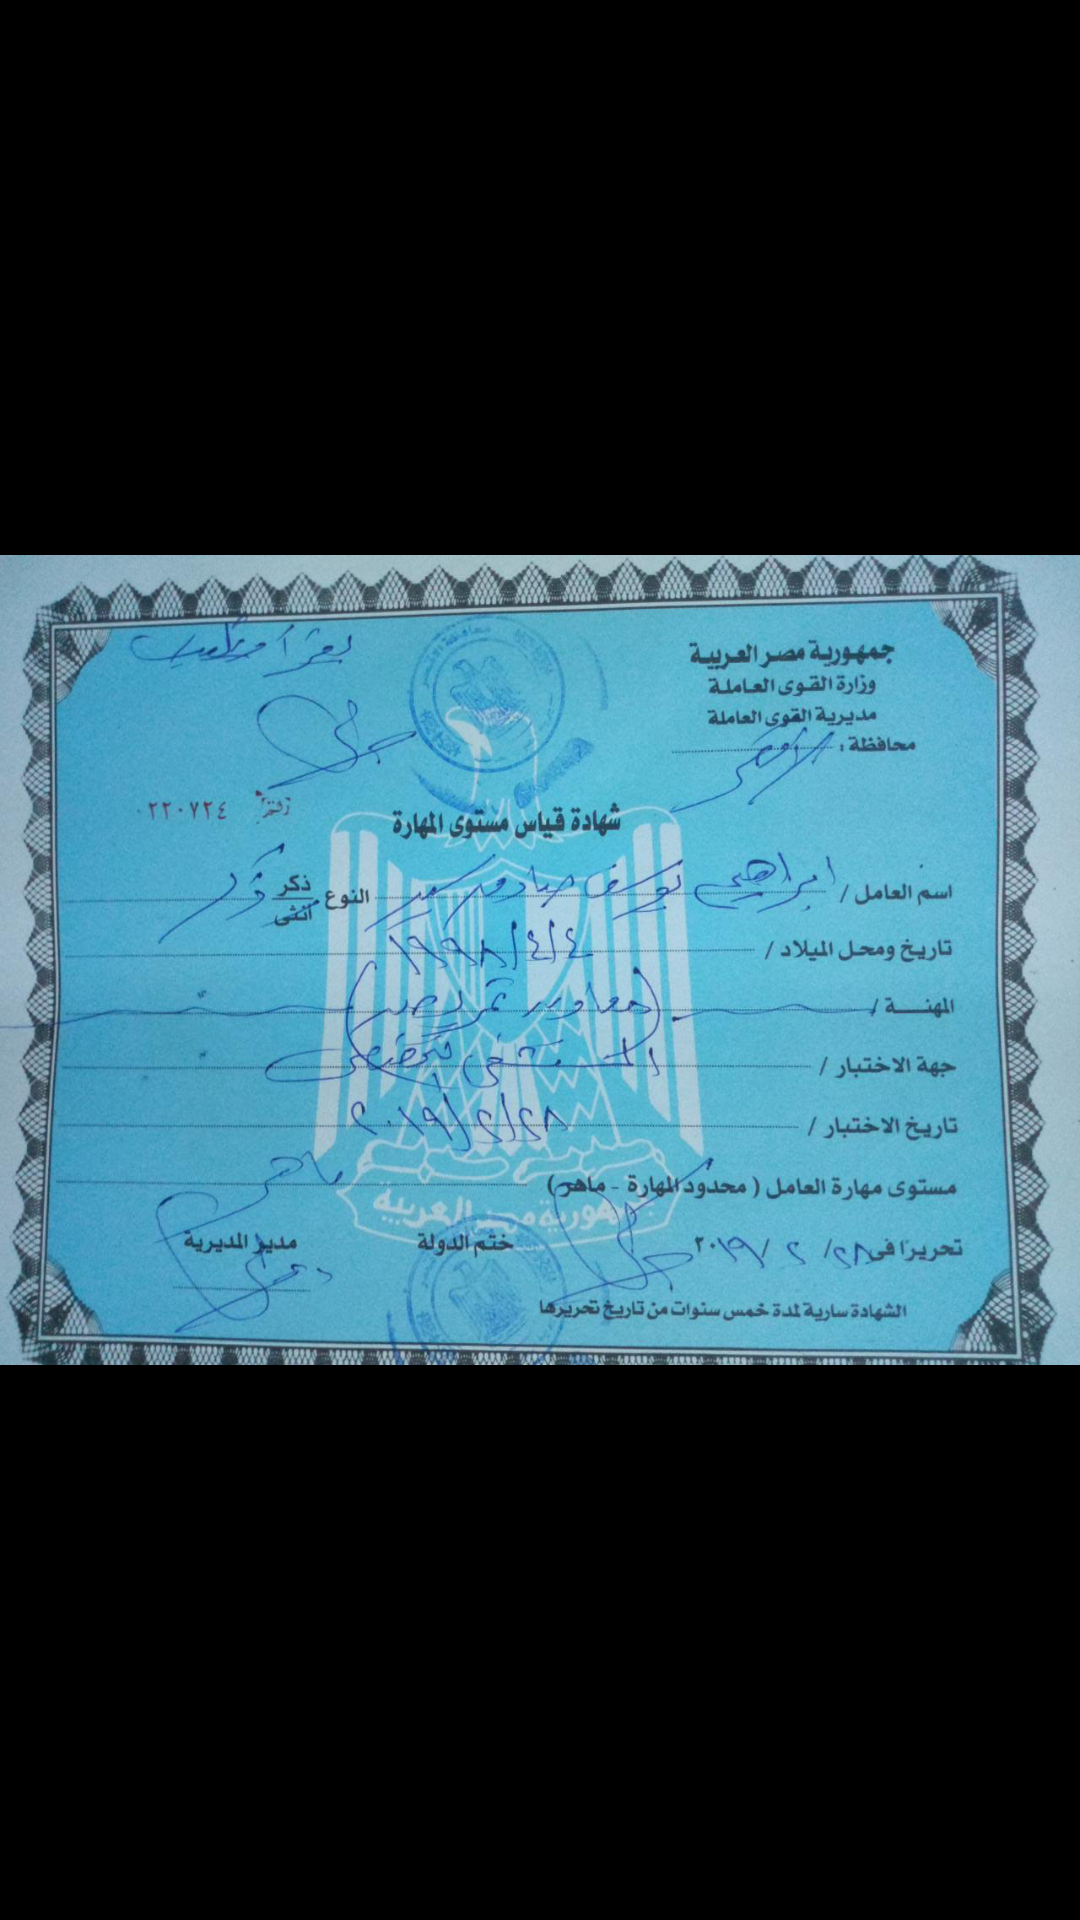 جمهورية مصر العربية
وزارة القوى العاملة
مديرية القوى العاملة
محافظة : الأقصر
يقرأ ويكتب
رقم ٠٢٢٠٧٢٤
شهادة قياس مستوى المهارة
اسم العامل / ابراهيم يوسف صادق النوع ذكر أنثى ذكر
تاريخ ومحل الميلاد / ١٩٩٨/٤/٤
المهنة / (معاون تمريض)
جهة الاختبار / المستشفى
تاريخ الاختبار / ٢٠١٩/٢/٢٨
مستوى مهارة العامل ( محدود المهارة - ماهر ) ماهر
تحريرًا فى ٢٨/ ٢ /٢٠١٩ ختم الدولة مدير المديرية
الشهادة سارية لمدة خمس سنوات من تاريخ تحريرها
جمهورية مصر العربية